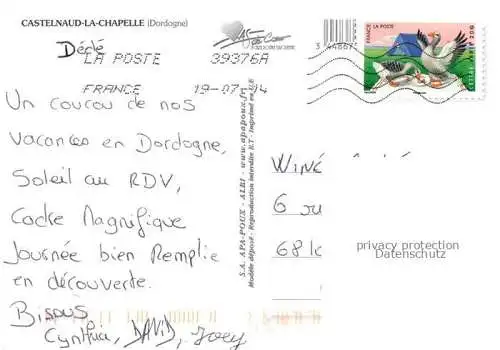 CASTELNAUD-LA-CHAPELLE (Dordogne)
Dédé
LA POSTE 39376A
FRANCE 19-07 14
Un coucou de nos
vacances en Dordogne,
Soleil au RDV,
Cadre Magnifique
Journée bien Remplie
en découverte.
Bisous
Cynthia, DAVID, Joey
S.A. APA-POUX - ALBI - www.apapoux.fr
Modèle déposé - Reproduction interdite R.T - Imprimé en U.E
3 44667
FRANCE LA POSTE
LETTRE VERTE 20G
WINÉ
6
68
privacy protection
Datenschutz